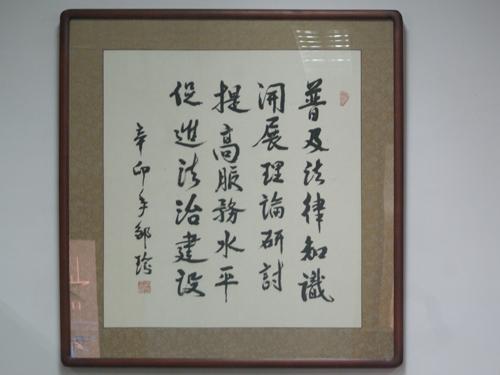 普及法律知識
開展理論研討
提高服務水平
促進法治建设
辛卯年邹瑜